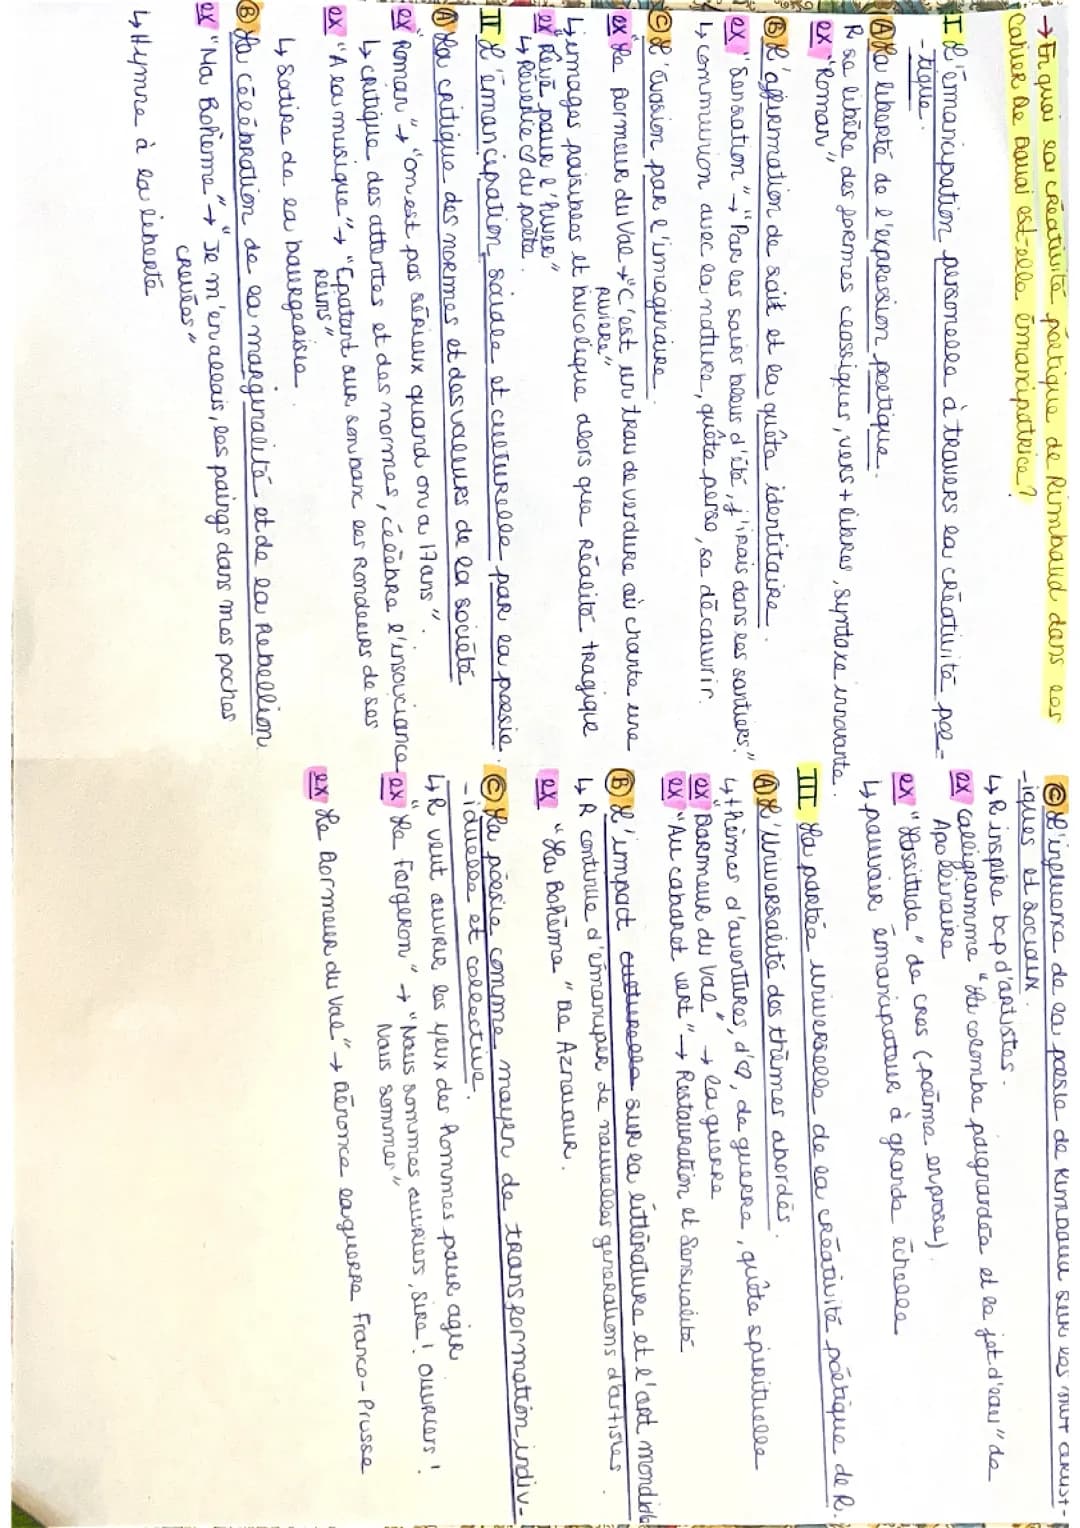 → En quoi la créativité poétique de Rimbaud dans les
Cahier de Douai est-elle émancipatrice ?
I L'émancipation personelle à travers la créativité poé-
-tique.
Ⓐ La liberté de l'expression poetique.
R se libère des formes classiques, vers + libres, syntaxe innovante.
ex "Roman"
Ⓑ L'affirmation de soit et la quête identitaire.
ex "Sensation" → "Par les soirs bleus d'été, j'irais dans les sentiers."
↳ communion avec la nature, quête perso, se découvrir.
Ⓒ L'évasion par l'imaginaire.
ex "Le Dormeur du Val → "C'est un trou de verdure où chante une
rivière"
↳ images paisibles et bucolique alors que Réalité tragique
ex "Rêvé pour l'hiver"
↳ Rêverie ♡ du poète.
II L'émancipation sociale et culturelle par la poésie.
Ⓐ La critique des normes et des valeurs de la société.
ex "Roman" → "On est pas sérieux quand on a 17 ans".
↳ critique des attentes et des normes, célèbre l'insouciance
ex "A la musique" → "Epatant sur son banc les rondeurs de ses
reins"
↳ Satire de la bourgeoisie.
Ⓑ La célébration de la marginalité et de la Rebellion.
ex "Ma Bohème" → "Je m'en allais, les poings dans mes poches
crevées"
↳ Hymne à la liberté
Ⓒ L'influence de la poésie de Rimbaud sur les mvt artist-
-iques et sociaux.
↳ R inspire bcp d'artistes.
ex Calligramme "La colombe poignardée et le jet d'eau" de
Apollinaire
ex "Lassitude" de Cros (poème en prose).
↳ pouvoir émancipateur à grande échelle
III La portée universelle de la créativité poétique de R.
Ⓐ L'universalité des thèmes abordés.
↳ thèmes d'aventures, d'♡, de guerre, quête spirituelle
ex "Dormeur du Val" → la guerre
ex "Au cabaret vert" → Restauration et Sensualité
Ⓑ L'impact sur la littérature et l'art mondiale
↳ R continue d'émanciper de nouvelles generations d'artistes.
ex "La Bohème" De Aznavour.
Ⓒ La poésie comme moyen de transformation indiv-
-iduelle et collective.
↳ R veut ouvrir les yeux des Hommes pour agir
ex "Le Forgeron" → "Nous sommes ouvriers, sire ! ouvriers !
Nous sommes"
ex "Le Dormeur du Val" → dénonce la guerre Franco-Prusse